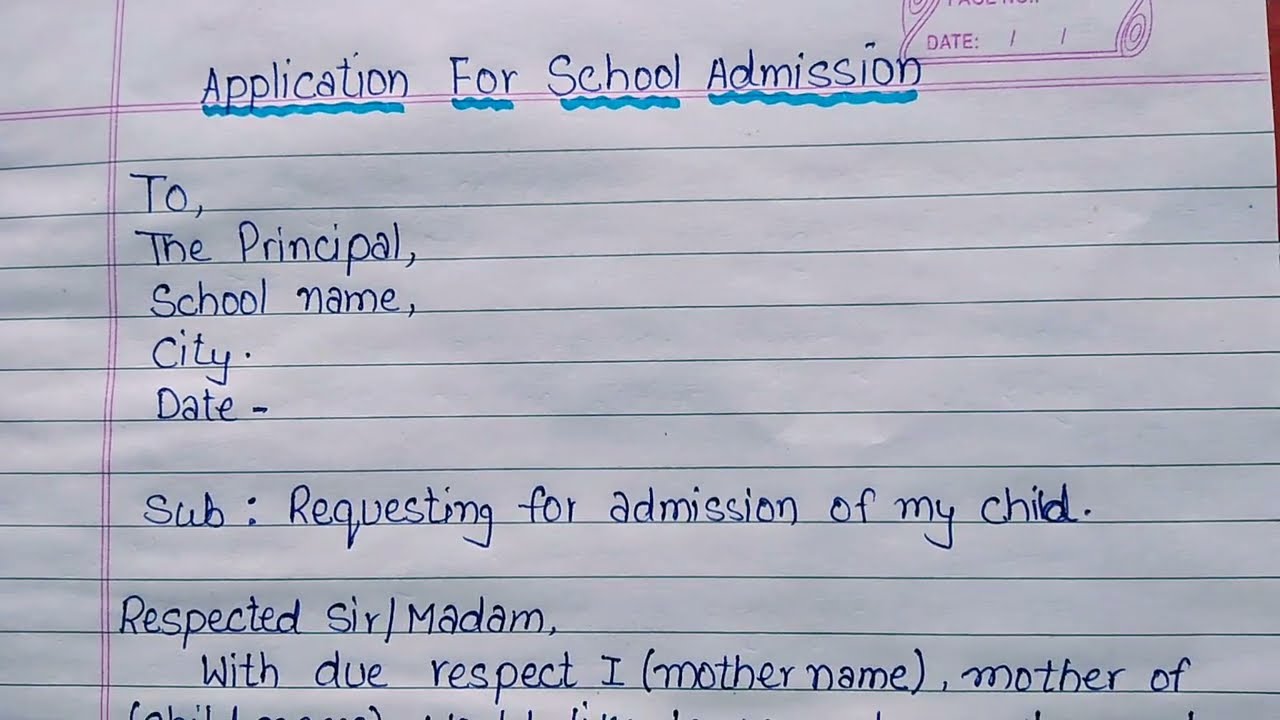 PAGE NO.:
DATE: / /
Application For School Admission
To,
The Principal,
School name,
City.
Date -
Sub : Requesting for admission of my child.
Respected Sir/Madam,
With due respect I (mother name), mother of
(child name)